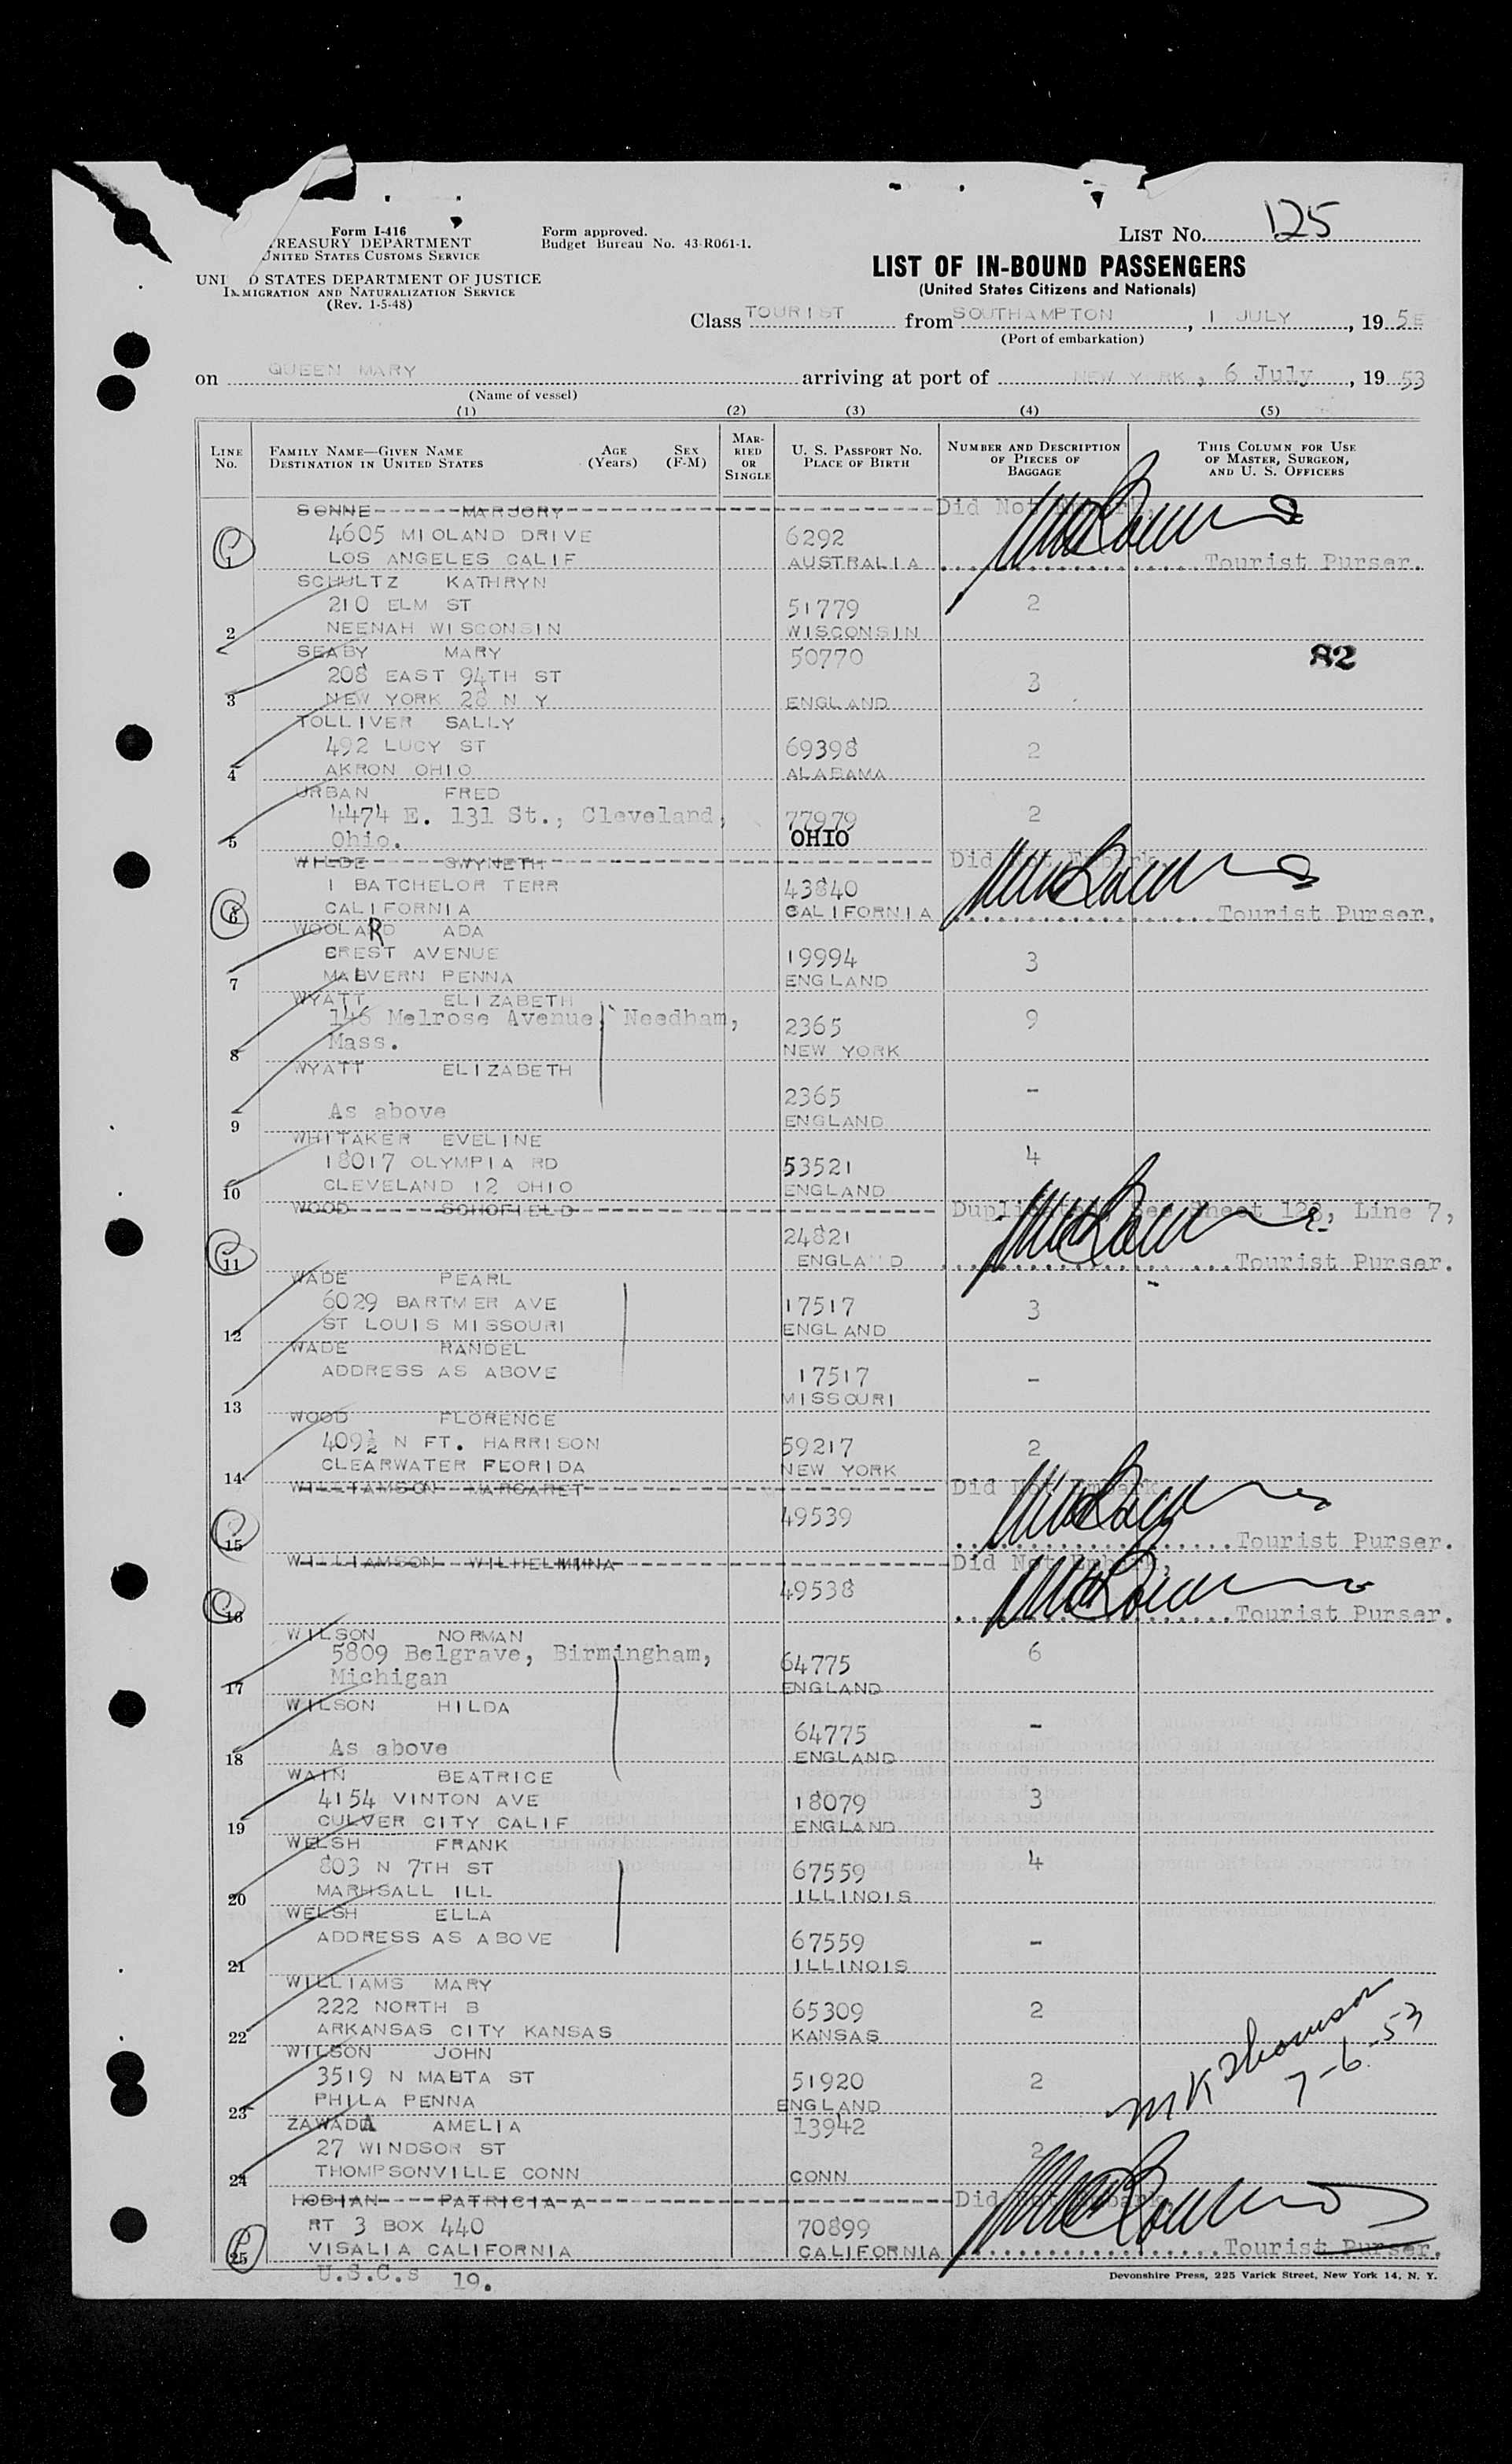 Form I-416
TREASURY DEPARTMENT
UNITED STATES CUSTOMS SERVICE
UNI D STATES DEPARTMENT OF JUSTICE
IMMIGRATION AND NATURALIZATION SERVICE
(Rev. 1-5-48)
Form approved.
Budget Bureau No. 43-R061-1.
LIST NO. 125
LIST OF IN-BOUND PASSENGERS
(United States Citizens and Nationals)
Class TOURIST from SOUTHAMPTON, 1 JULY, 19 5
(Port of embarkation)
on QUEEN MARY arriving at port of NEW YORK, 6 July, 19 53
(Name of vessel)
(1) (2) (3) (4) (5)
LINE NO. FAMILY NAME—GIVEN NAME DESTINATION IN UNITED STATES AGE (Years) SEX (F-M) MARRIED OR SINGLE U. S. PASSPORT NO. PLACE OF BIRTH NUMBER AND DESCRIPTION OF PIECES OF BAGGAGE THIS COLUMN FOR USE OF MASTER, SURGEON, AND U. S. OFFICERS
SONNE MARJORY Did Not Embark,
4605 MIOLAND DRIVE 6292
1 LOS ANGELES CALIF AUSTRALIA Tourist Purser.
SCHULTZ KATHRYN
210 ELM ST 51779 2
2 NEENAH WISCONSIN WISCONSIN
SEABY MARY 50770 82
208 EAST 94TH ST 3
3 NEW YORK 28 N Y ENGLAND
TOLLIVER SALLY
492 LUCY ST 69398 2
4 AKRON OHIO ALABAMA
URBAN FRED
4474 E. 131 St., Cleveland, 77979 2
5 Ohio. OHIO
WILDE GWYNETH Did Not Embark,
1 BATCHELOR TERR 43840
6 CALIFORNIA CALIFORNIA Tourist Purser.
WOOLARD ADA
CREST AVENUE 19994 3
7 MALVERN PENNA ENGLAND
WYATT ELIZABETH
146 Melrose Avenue, Needham, 2365 9
8 Mass. NEW YORK
WYATT ELIZABETH
2365 -
As above
9 ENGLAND
WHITAKER EVELINE
18017 OLYMPIA RD 53521 4
10 CLEVELAND 12 OHIO ENGLAND
WOOD SCHOFIELD Duplicated See Sheet 128, Line 7,
24821
11 ENGLAND Tourist Purser.
WADE PEARL
6029 BARTMER AVE 17517 3
12 ST LOUIS MISSOURI ENGLAND
WADE RANDEL
ADDRESS AS ABOVE 17517 -
13 MISSOURI
WOOD FLORENCE
409½ N FT. HARRISON 59217 2
14 CLEARWATER FLORIDA NEW YORK
WILLIAMSON MARGARET Did Not Embark
49539
15 Tourist Purser.
WILLIAMSON WILHELMINA Did Not Embark,
49538
16 Tourist Purser.
WILSON NORMAN
5809 Belgrave, Birmingham, 64775 6
17 Michigan ENGLAND
WILSON HILDA
64775 -
18 As above ENGLAND
WAIN BEATRICE
4154 VINTON AVE 18079 3
19 CULVER CITY CALIF ENGLAND
WELSH FRANK
803 N 7TH ST 67559 4
20 MARHSALL ILL ILLINOIS
WELSH ELLA
ADDRESS AS ABOVE 67559 -
21 ILLINOIS
WILLIAMS MARY
222 NORTH B 65309 2
22 ARKANSAS CITY KANSAS KANSAS
WILSON JOHN
3519 N MARTA ST 51920 2
23 PHILA PENNA ENGLAND
MK Thomson
7-6-53
ZAWADA AMELIA 13942
27 WINDSOR ST 2
24 THOMPSONVILLE CONN CONN
HOBIAN PATRICIA A Did Not Embark
RT 3 BOX 440 70899
25 VISALIA CALIFORNIA CALIFORNIA Tourist Purser.
U.S.C.s 19.
Devonshire Press, 225 Varick Street, New York 14, N. Y.